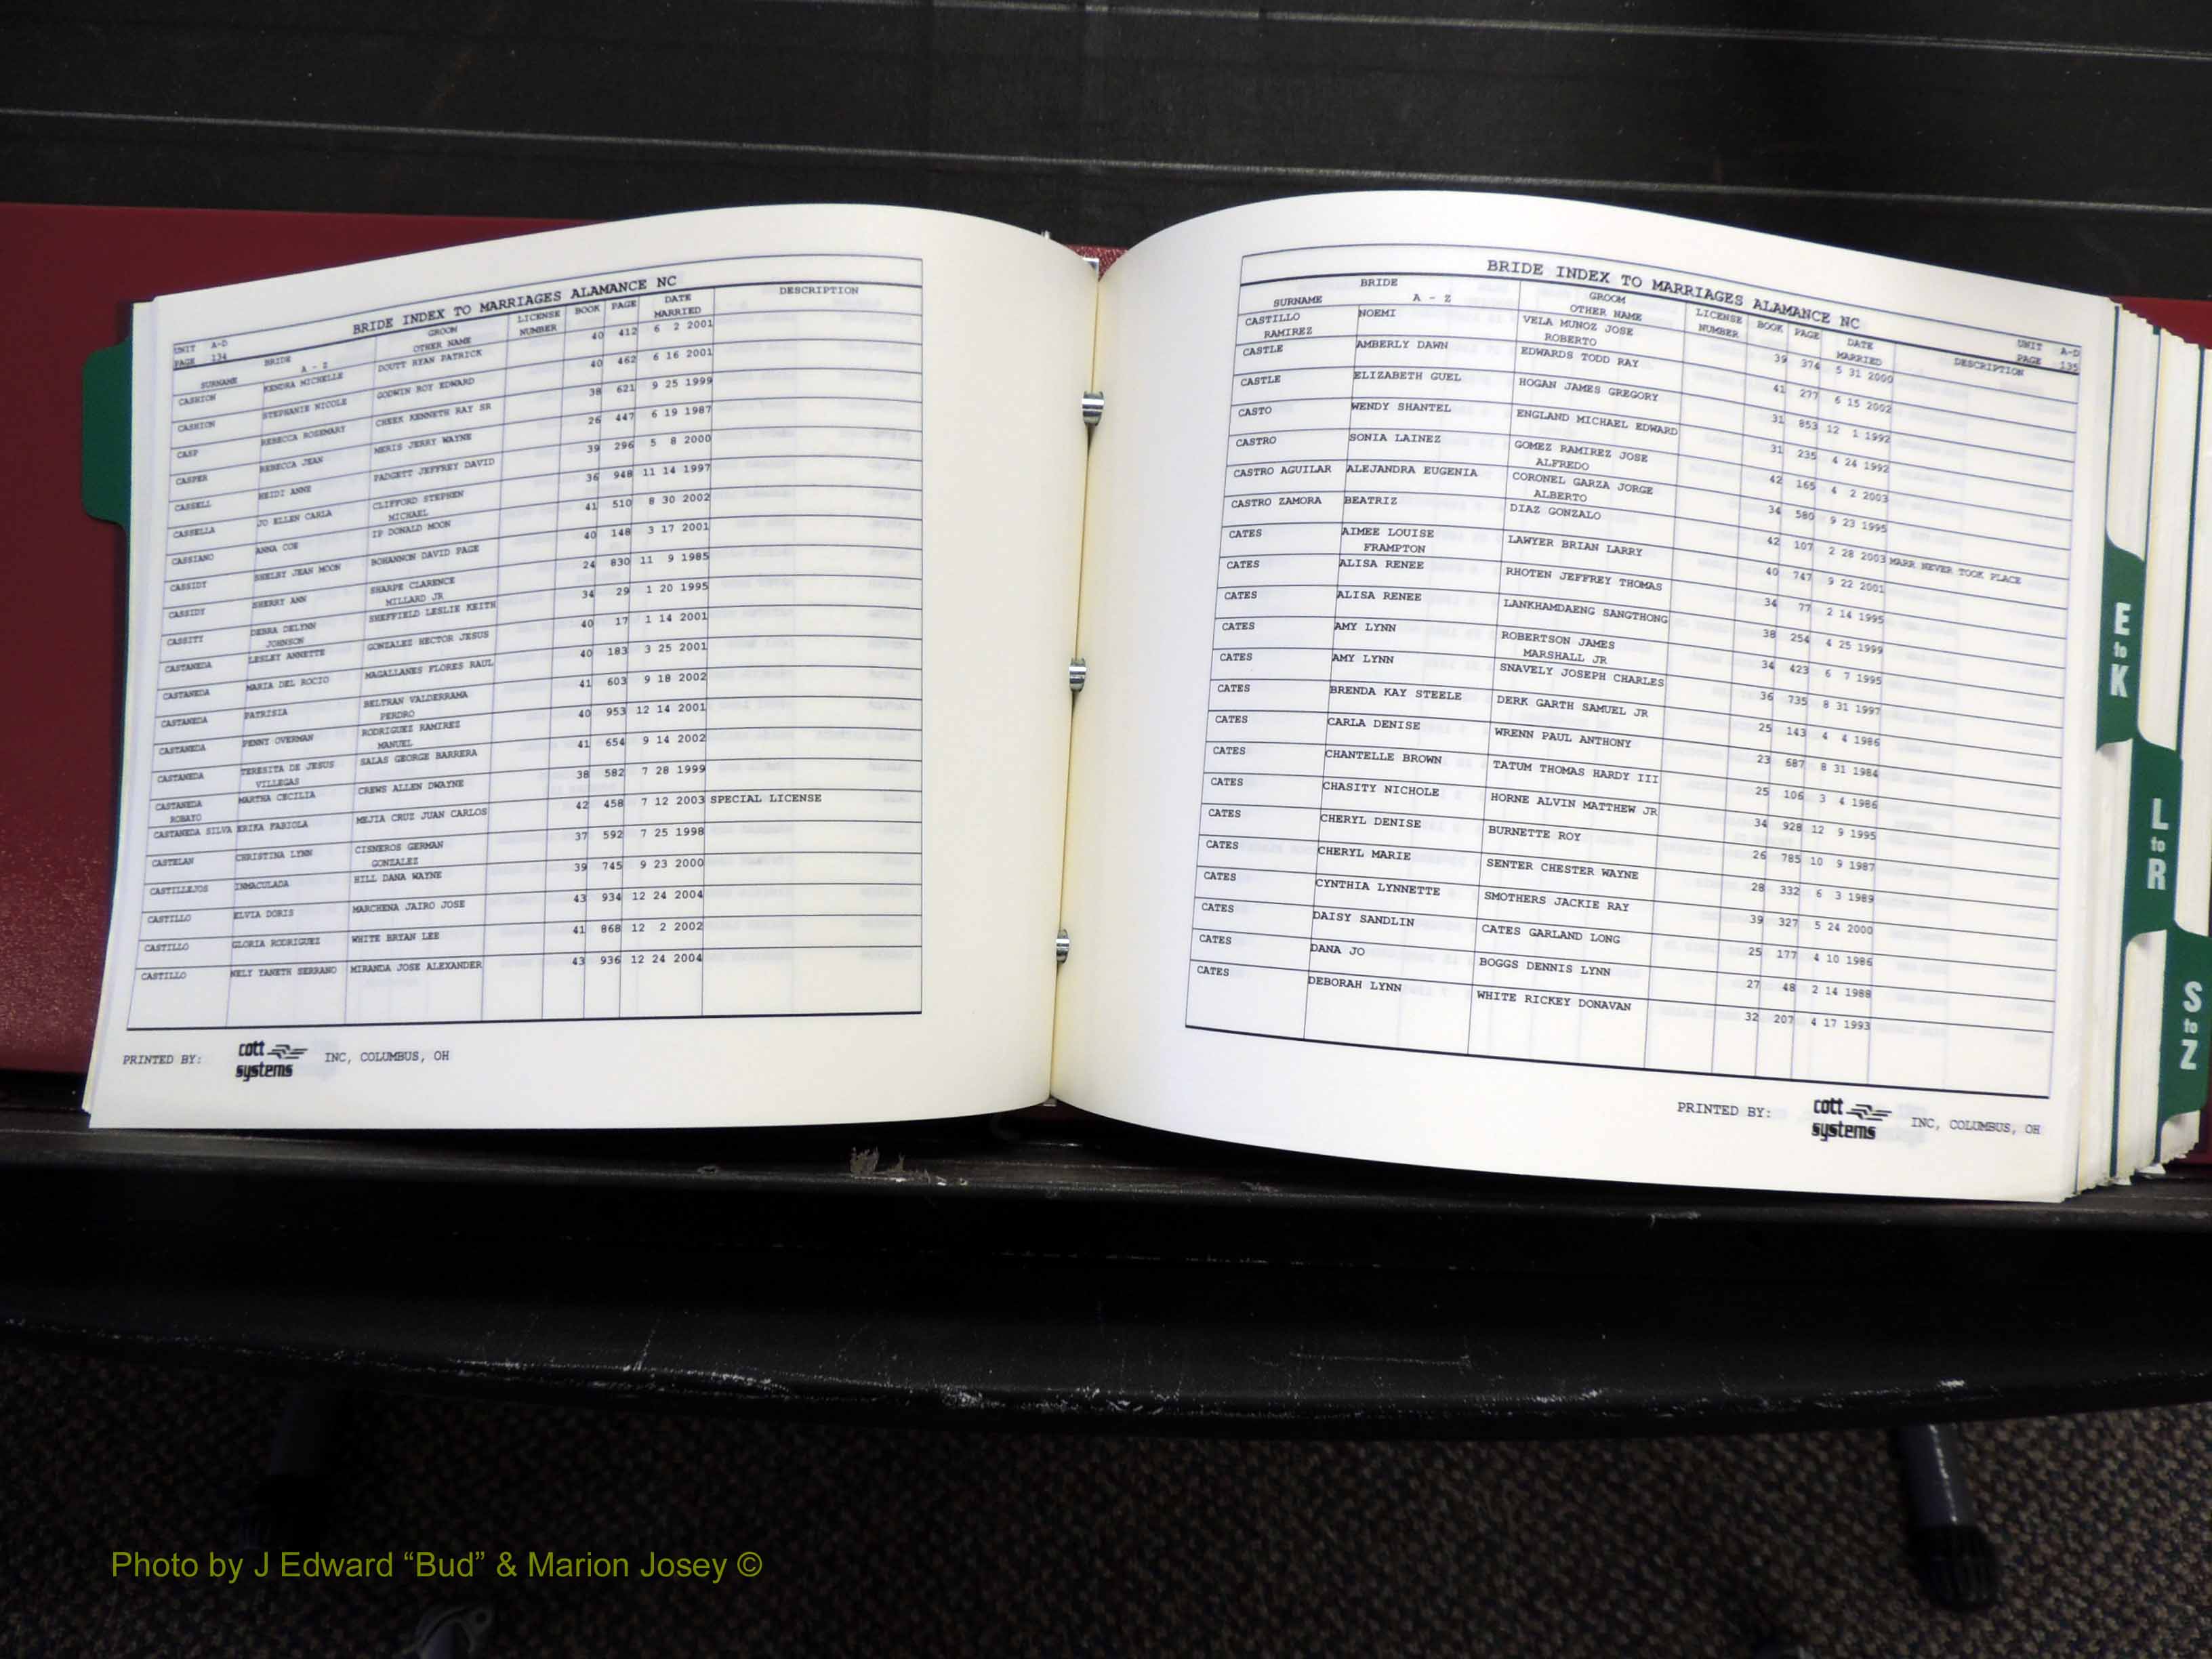 BRIDE INDEX TO MARRIAGES ALAMANCE NC
UNIT A-D
PAGE 134
BRIDE GROOM LICENSE BOOK PAGE DATE DESCRIPTION
SURNAME A - Z OTHER NAME NUMBER MARRIED
CASHION KENDRA MICHELLE DOUTT RYAN PATRICK 40 412 6 2 2001
CASHION STEPHANIE NICOLE GODWIN ROY EDWARD 40 462 6 16 2001
CASP REBECCA ROSEMARY CHEEK KENNETH RAY SR 38 621 9 25 1999
CASPER REBECCA JEAN MERIS JERRY WAYNE 26 447 6 19 1987
CASSELL HEIDI ANNE PADGETT JEFFREY DAVID 39 296 5 8 2000
CASSELLA JO ELLEN CARLA CLIFFORD STEPHEN 36 948 11 14 1997
MICHAEL
CASSIANO ANNA COE IP DONALD MOON 41 510 8 30 2002
CASSIDY SHELBY JEAN MOON BOHANNON DAVID PAGE 40 148 3 17 2001
CASSIDY SHERRY ANN SHARPE CLARENCE 24 830 11 9 1985
MILLARD JR
CASSITY DEBRA DELYNN SHEFFIELD LESLIE KEITH 34 29 1 20 1995
JOHNSON
CASTANEDA LESLEY ANNETTE GONZALEZ HECTOR JESUS 40 17 1 14 2001
CASTANEDA MARIA DEL ROCIO MAGALLANES FLORES RAUL 40 183 3 25 2001
CASTANEDA PATRISIA BELTRAN VALDERRAMA 41 603 9 18 2002
PERDRO
CASTANEDA PENNY OVERMAN RODRIGUEZ RAMIREZ 40 953 12 14 2001
MANUEL
CASTANEDA TERESITA DE JESUS SALAS GEORGE BARRERA 41 654 9 14 2002
VILLEGAS
CASTANEDA MARTHA CECILIA CREWS ALLEN DWAYNE 38 582 7 28 1999
ROBAYO
CASTANEDA SILVA ERIKA FABIOLA MEJIA CRUZ JUAN CARLOS 42 458 7 12 2003 SPECIAL LICENSE
CASTELAN CHRISTINA LYNN CISNEROS GERMAN 37 592 7 25 1998
GONZALEZ
CASTILLEJOS INMACULADA HILL DANA WAYNE 39 745 9 23 2000
CASTILLO ELVIA DORIS MARCHENA JAIRO JOSE 43 934 12 24 2004
CASTILLO GLORIA RODRIGUEZ WHITE BRYAN LEE 41 868 12 2 2002
CASTILLO NELY YANETH SERRANO MIRANDA JOSE ALEXANDER 43 936 12 24 2004
PRINTED BY: cott systems INC, COLUMBUS, OH
BRIDE INDEX TO MARRIAGES ALAMANCE NC
UNIT A-D
PAGE 135
BRIDE GROOM LICENSE BOOK PAGE DATE DESCRIPTION
SURNAME A - Z OTHER NAME NUMBER MARRIED
CASTILLO NOEMI VELA MUNOZ JOSE 39 374 5 31 2000
RAMIREZ ROBERTO
CASTLE AMBERLY DAWN EDWARDS TODD RAY 41 277 6 15 2002
CASTLE ELIZABETH GUEL HOGAN JAMES GREGORY 31 853 12 1 1992
CASTO WENDY SHANTEL ENGLAND MICHAEL EDWARD 31 235 4 24 1992
CASTRO SONIA LAINEZ GOMEZ RAMIREZ JOSE 42 165 4 2 2003
ALFREDO
CASTRO AGUILAR ALEJANDRA EUGENIA CORONEL GARZA JORGE 34 580 9 23 1995
ALBERTO
CASTRO ZAMORA BEATRIZ DIAZ GONZALO 42 107 2 28 2003 MARR NEVER TOOK PLACE
CATES AIMEE LOUISE LAWYER BRIAN LARRY 40 747 9 22 2001
FRAMPTON
CATES ALISA RENEE RHOTEN JEFFREY THOMAS 34 77 2 14 1995
CATES ALISA RENEE LANKHAMDAENG SANGTHONG 38 254 4 25 1999
CATES AMY LYNN ROBERTSON JAMES 34 423 6 7 1995
MARSHALL JR
CATES AMY LYNN SNAVELY JOSEPH CHARLES 36 735 8 31 1997
CATES BRENDA KAY STEELE DERK GARTH SAMUEL JR 25 143 4 4 1986
CATES CARLA DENISE WRENN PAUL ANTHONY 23 687 8 31 1984
CATES CHANTELLE BROWN TATUM THOMAS HARDY III 25 106 3 4 1986
CATES CHASITY NICHOLE HORNE ALVIN MATTHEW JR 34 928 12 9 1995
CATES CHERYL DENISE BURNETTE ROY 26 785 10 9 1987
CATES CHERYL MARIE SENTER CHESTER WAYNE 28 332 6 3 1989
CATES CYNTHIA LYNNETTE SMOTHERS JACKIE RAY 39 327 5 24 2000
CATES DAISY SANDLIN CATES GARLAND LONG 25 177 4 10 1986
CATES DANA JO BOGGS DENNIS LYNN 27 48 2 14 1988
CATES DEBORAH LYNN WHITE RICKEY DONAVAN 32 207 4 17 1993
PRINTED BY: cott systems INC, COLUMBUS, OH
E to K
L to R
S to Z
Photo by J Edward “Bud” & Marion Josey ©